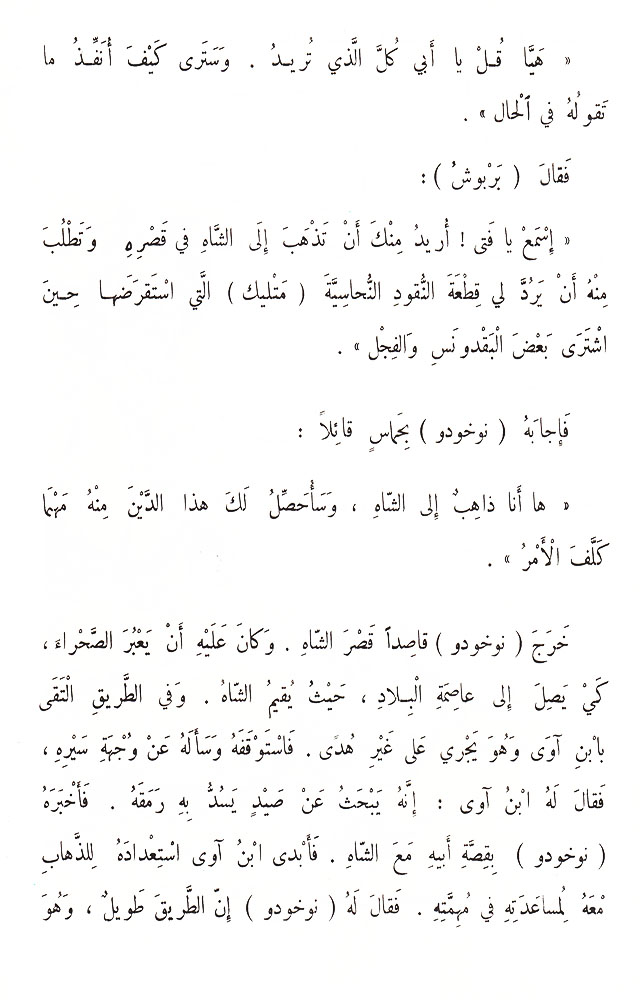 « هَيَّا قُـلْ يا أَبي كُلَّ الَّذي تُريـدُ . وَسَتَرى كَيْفَ أُنَفِّـذُ ما
تَقولُهُ في ٱلْحال » .
فَقالَ ( بَرْبوشُ ) :
« إِسْمَعْ يا فَتى ! أُريدُ مِنْكَ أَنْ تَذْهَبَ إِلَى الشَّاهِ في قَصْرِهِ وَتَطْلُبَ
مِنْهُ أَنْ يَرُدَّ لي قِطْعَةَ النُّقودِ النُّحاسِيَّةَ ( مَتْليك ) الَّتي اسْتَقرَضَهـا حِـينَ
اشْتَرَى بَعْضَ الْبَقْدونَسِ وَالفِجْلِ » .
فَإِجابَهُ ( نوخودو ) بِحَماسٍ قائِلاً :
« ها أَنا ذاهِبٌ إِلى الشّاهِ ، وَسَأُحَصِّلُ لَكَ هذا الدَّيْنَ مِنْهُ مَهْمَا
كَلَّفَ الْأَمْرُ » .
خَرَجَ ( نوخودو ) قاصِداً قَصْرَ الشّاهِ . وَكانَ عَلَيْهِ أَنْ يَعْبُرَ الصَّحْراءَ ،
كَيْ يَصِلَ إِلى عاصِمَةِ الْبِـلادِ ، حَيْثُ يُقيمُ الشّاهُ . وَفي الطَّريقِ الْتَقَى
بابْنِ آوَى وَهُوَ يَجْري عَلى غَيْرِ هُدًى . فَاسْتَوْقَفَهُ وَسَأَلَهُ عَنْ وُجْهَةِ سَيْرِهِ ،
فَقالَ لَهُ ابْنُ آوى : إِنَّهُ يَبْحَثُ عَنْ صَيْدٍ يَسُدُّ بِهِ رَمَقَهُ . فَأَخْبَرَهُ
( نوخودو ) بِقِصَّةِ أَبيهِ مَعَ الشّاهِ . فَأَبْدى ابْنُ آوى اسْتِعْدادَهُ لِلذَّهابِ
مَعَهُ لِمُساعَدَتِهِ في مُهِمَّتِهِ . فَقالَ لَهُ ( نوخودو ) إِنّ الطَّريقَ طَويلٌ ، وَهُوَ